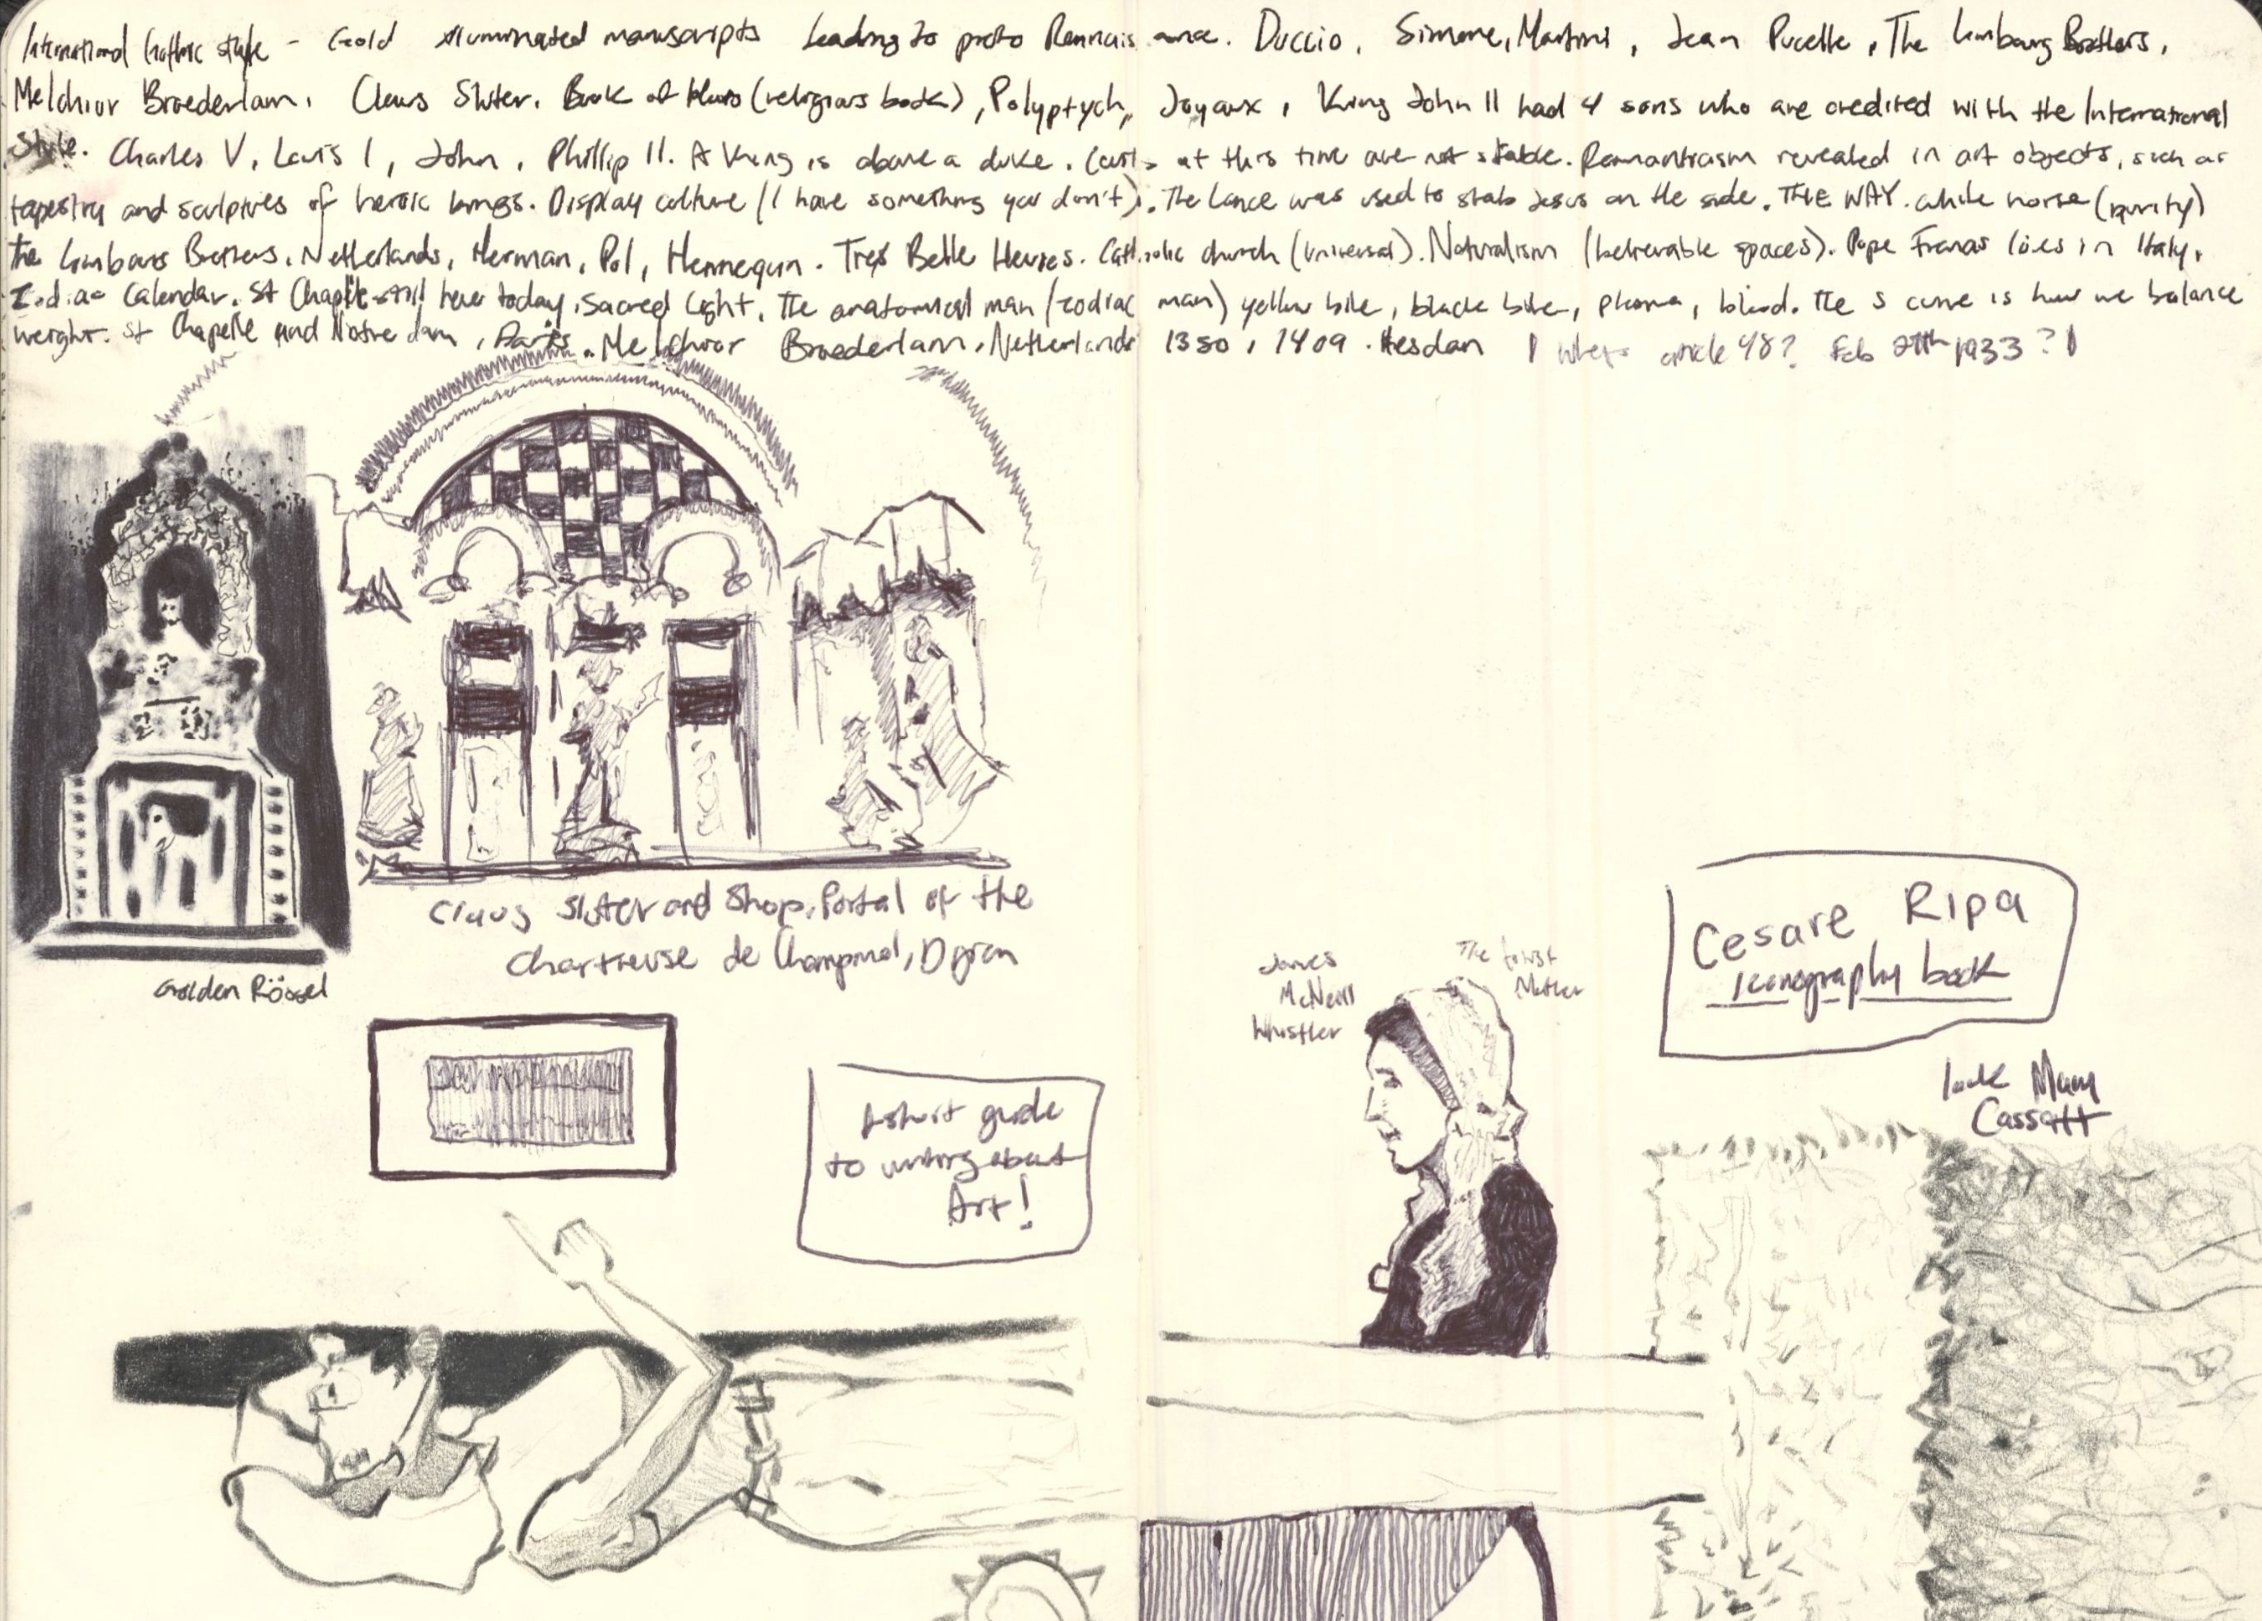 International Gothic style - Gold illuminated manuscripts Leading to proto Rennaissance. Duccio, Simone, Martini, Jean Pucelle, The Limbourg Brothers,
Melchior Broederlam. Claus Sluter. Book of Hours (religious book), Polyptych, Joyaux, King John II had 4 sons who are credited with the International
Style. Charles V, Louis I, John, Phillip II. A King is above a duke. at this time are not stable. Romantacism revealed in art objects, such as
tapestry and sculptures of heroic kings. Display culture (I have something you don't). The Lance was used to stab Jesus on the side. THE WAY. white horse (purity)
The Limbourg Brothers, Netherlands, Herman, Pol, Hennequin. Tres Belle Heures. Catholic church (universal). Naturalism (believable spaces). Pope Francis lives in Italy.
Zodiac Calendar. St Chapelle still here today. Sacred Light. The anatomical man (zodiac man) yellow bile, black bile, blood. The S curve is how we balance
weight. St Chapelle and Notre dam, Paris. Melchior Broederlam, Netherlands 1350, 1409. Hesdan article 48? Feb 1933?
Golden Rössel
Claus Sluter and Shop, Portal of the
Chartreuse de Champmol, Dijon
A short guide
to writing about
Art!
James
McNeill
Whistler
The
Mother
Cesare Ripa
Iconography book
look Mary
Cassatt